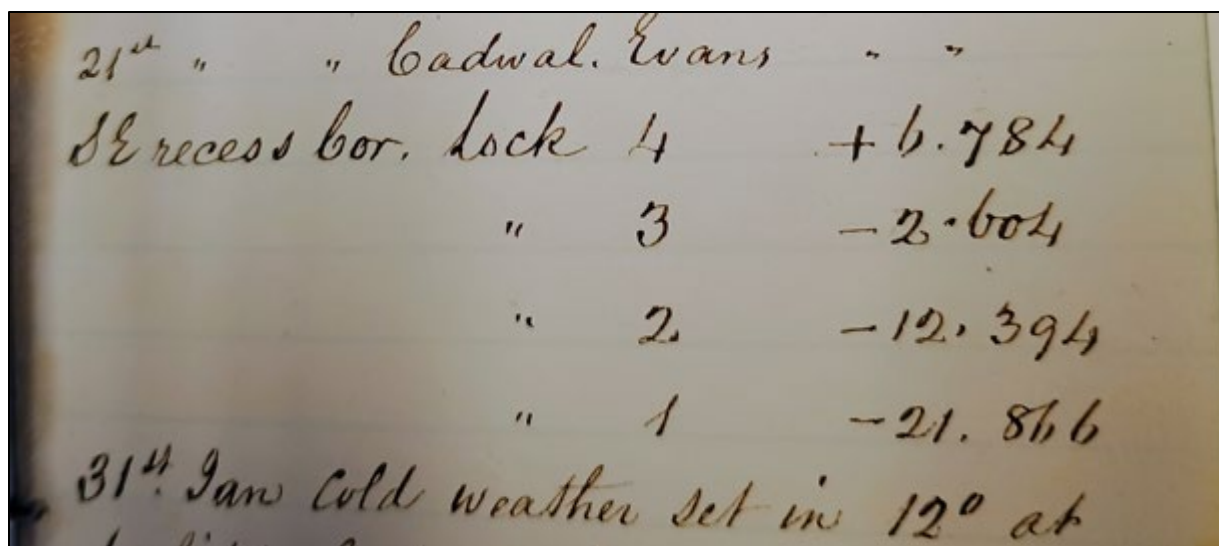 21st " " Cadwal. Evans " "
SE recess Cor. Lock 4 + 6.784
" 3 - 2.604
" 2 - 12.394
" 1 - 21.866
31st Jan Cold weather set in 12° at